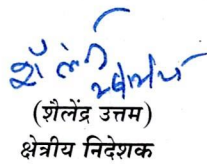 (शैलेंद्र उत्तम)
क्षेत्रीय निदेशक